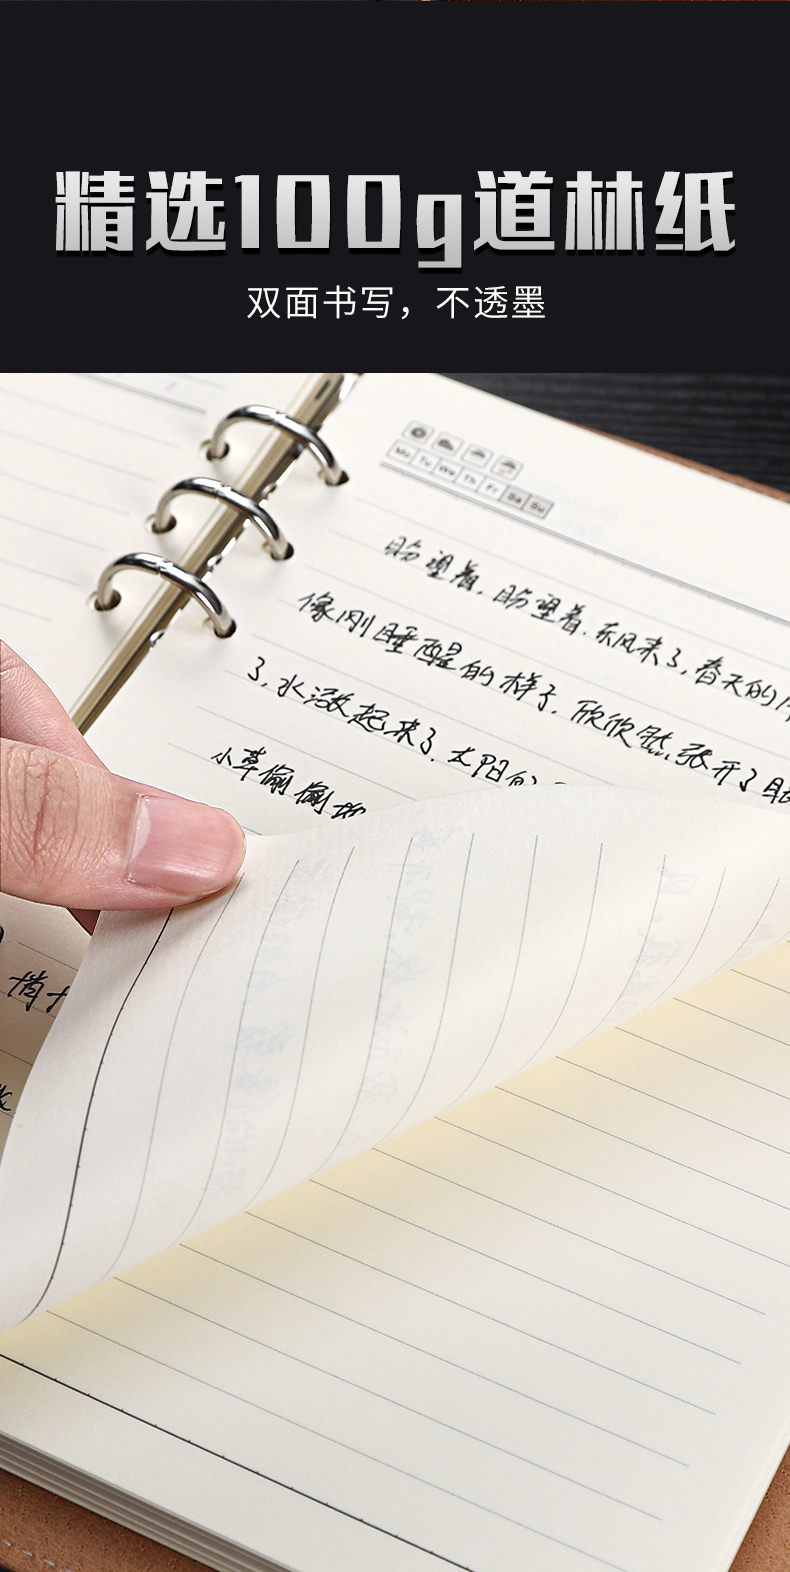 精选100g道林纸
双面书写，不透墨
Mo Tu We Th Fr Sa Su
盼望着，盼望着，东风来了，春天的
像刚睡醒的样子，欣欣然张开了
了，水涨起来了，太阳的
小草偷偷地